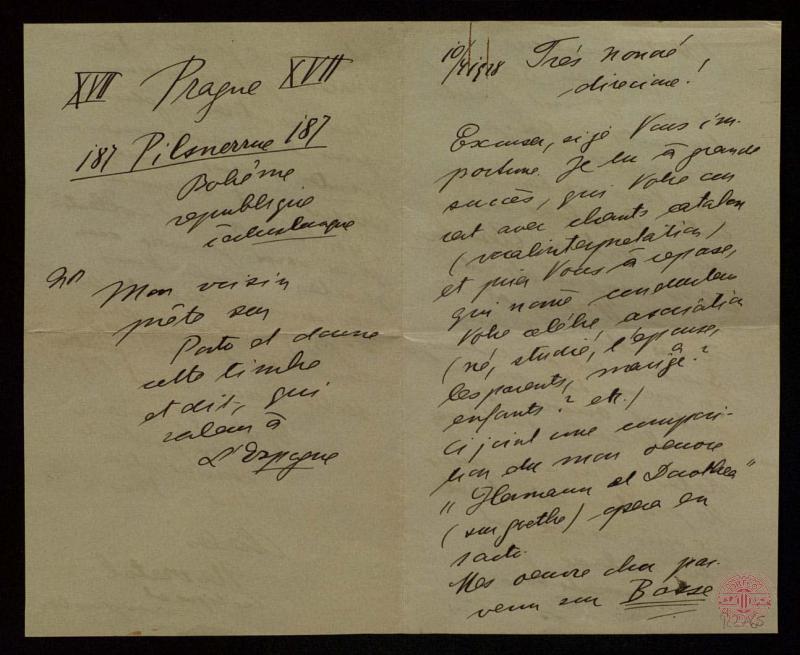 XVII Prague XVII
187 Pilsnerrue 187
Bohême
republique
Mon voisin
prête sur
Porto et donne
cette timbre
et dit, qui
valeur à
L'Espagne
10/ 1928 Trés honoré
direcime!
Excusez, si je Vous im-
portune. Je lu à grande
succès, qui Votre con
cert avec chants catalan
(vocalinterpretation)
et prier Vous à repose,
qui nome conducteur
Votre célébre asociàtion
(né, studié, l'épouse,
les parents, mariage?
enfants? etc.)
Ci joint une composi-
tion du mon oeuvre
"Hermann et Dorothea"
(sur goethe) opera en
Mes oeuvre chez par-
venu sur Bosse